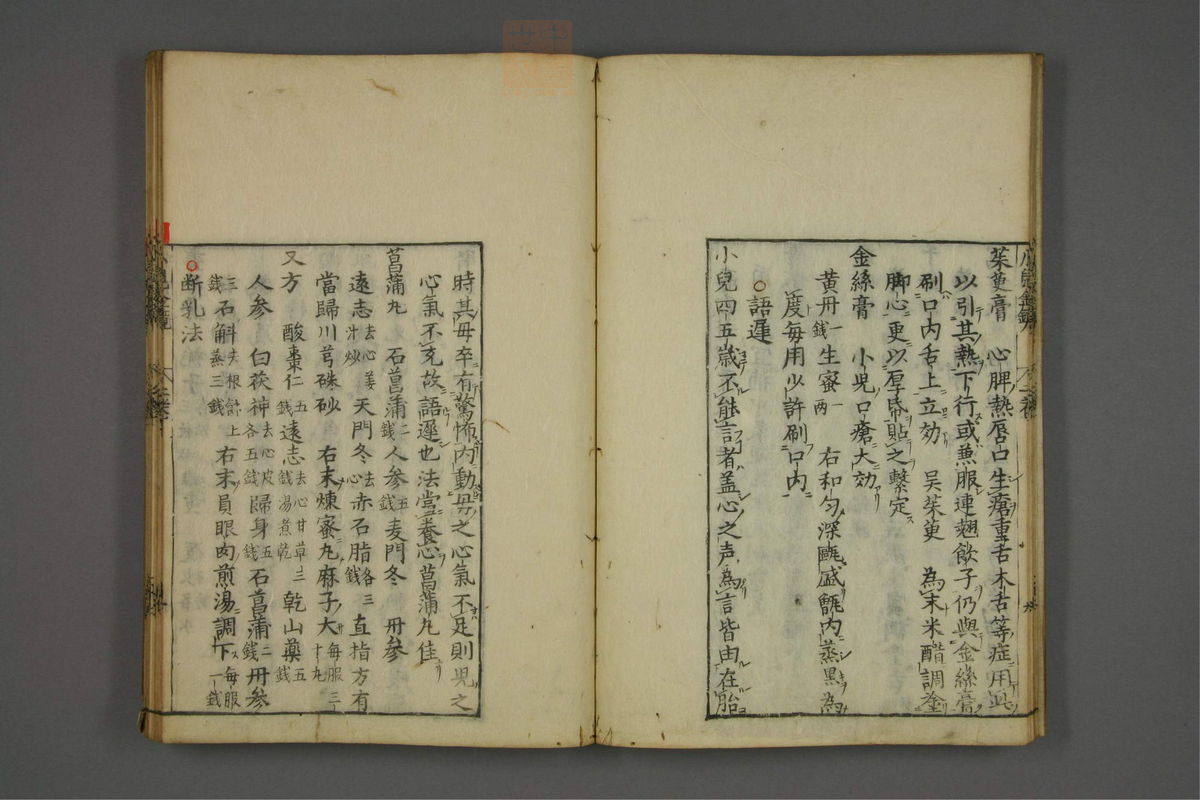 茱萸膏　心脾熱唇口生瘡重舌木舌等症用此
以引其熱下行或兼服連翹飲子仍與金絲膏
刷口内舌上立効　吳茱萸　為末米醋調塗
脚心更以厚帋貼之繫定
金絲膏　小児口瘡大効
黄丹一錢生蜜一兩　右和匀深甌盛甑内蒸黒為
度毎用少許刷口内
○語遲
小兒四五歳不能言者盖心之声為言皆由在胎
時其毋卒有驚怖内動毋之心氣不足則児之
心氣不充故語遲也法當養心菖蒲丸佳
菖蒲丸　石菖蒲二錢人參五錢麦門冬　丹參
遠志去心姜汁炒天門冬去心赤石脂各三錢直指方有
當歸川芎硃砂　右末煉蜜丸麻子大毎服三十丸
又方　酸棗仁五錢遠志去心甘草三錢湯煮乾　乾山藥五錢
人參　白茯神去心皮各五錢歸身五錢石菖蒲二錢丹參
三錢石斛去根三錢右末員眼肉煎湯調下毎服一錢
○断乳法